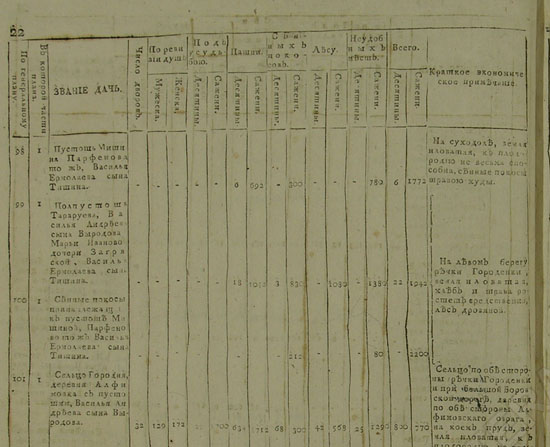 22
По генеральному плану.
Въ которой части планъ.
ЗВАНІЕ ДАЧЪ.
Число дворовъ.
По ревизіи душ.
Мужеска.
Женска.
Подъ усадьбою.
Десятины.
Сажени.
Пашни.
Десятины.
Сажени.
Сѣнныхъ покосовъ.
Десятины.
Сажени.
Лѣсу.
Десятины.
Сажени.
Неудобныхъ мѣстъ.
Десятины.
Сажени.
Всего.
Десятины.
Сажени.
Краткое экономическое примѣчаніе.
98 1 Пустошь Мишина
Парфенова
тожъ, Василья
Ермолаева сына
Тишина. - - - - - 6 692 - 300 - - - 780 6 1772
На суходолѣ, земля
иловатая, къ плодородію не весьма способна, сѣнные покосы
травою худы.
99 1 Полпустоши
Тараруева, Василья Андрѣева
сына Выродова
Марьи Ивановой
дочери Загряской, Василья
Ермолаева сына
Тишина. - - - - - 18 3 830 - 1080 - 1380 22
На лѣвомъ берегу
рѣчки Городенки,
земля иловатая,
хлѣбъ и трава растетъ средственно,
лѣсъ дровяной.
100 1 Сѣнные покосы
принадлежащія
къ пустошѣ Мишиной, Парфенова
тожъ Василья
Ермолаева сына
Тишина. - - - - - - - - - - - 80 - 2200
101 1 Сельцо Городня,
деревня Алфиновка съ пустошми, Василья Андрѣева сына Выродова. 32 129 172 - 68 300 42 568 25 1290 800 770
Сельцо по обѣ стороны рѣчки Городенки
и при большой Боровской дорогѣ, деревня
по обѣ стороны Алфиновскаго оврага,
на коемъ прудъ, земля иловатая, къ